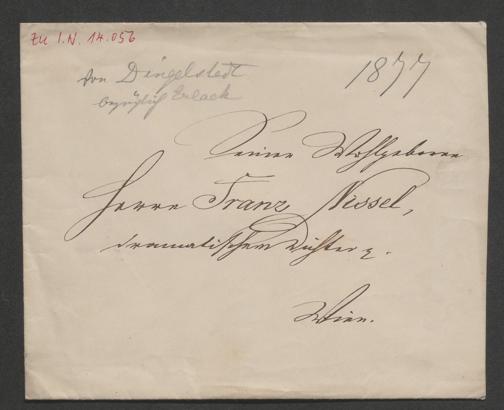 Zu I.N. 14.056
von Dingelstedt
bezüglich Erlach
1877
Seiner Wohlgeboren
Herrn Franz Nissel,
dramatischem Dichter
Wien.